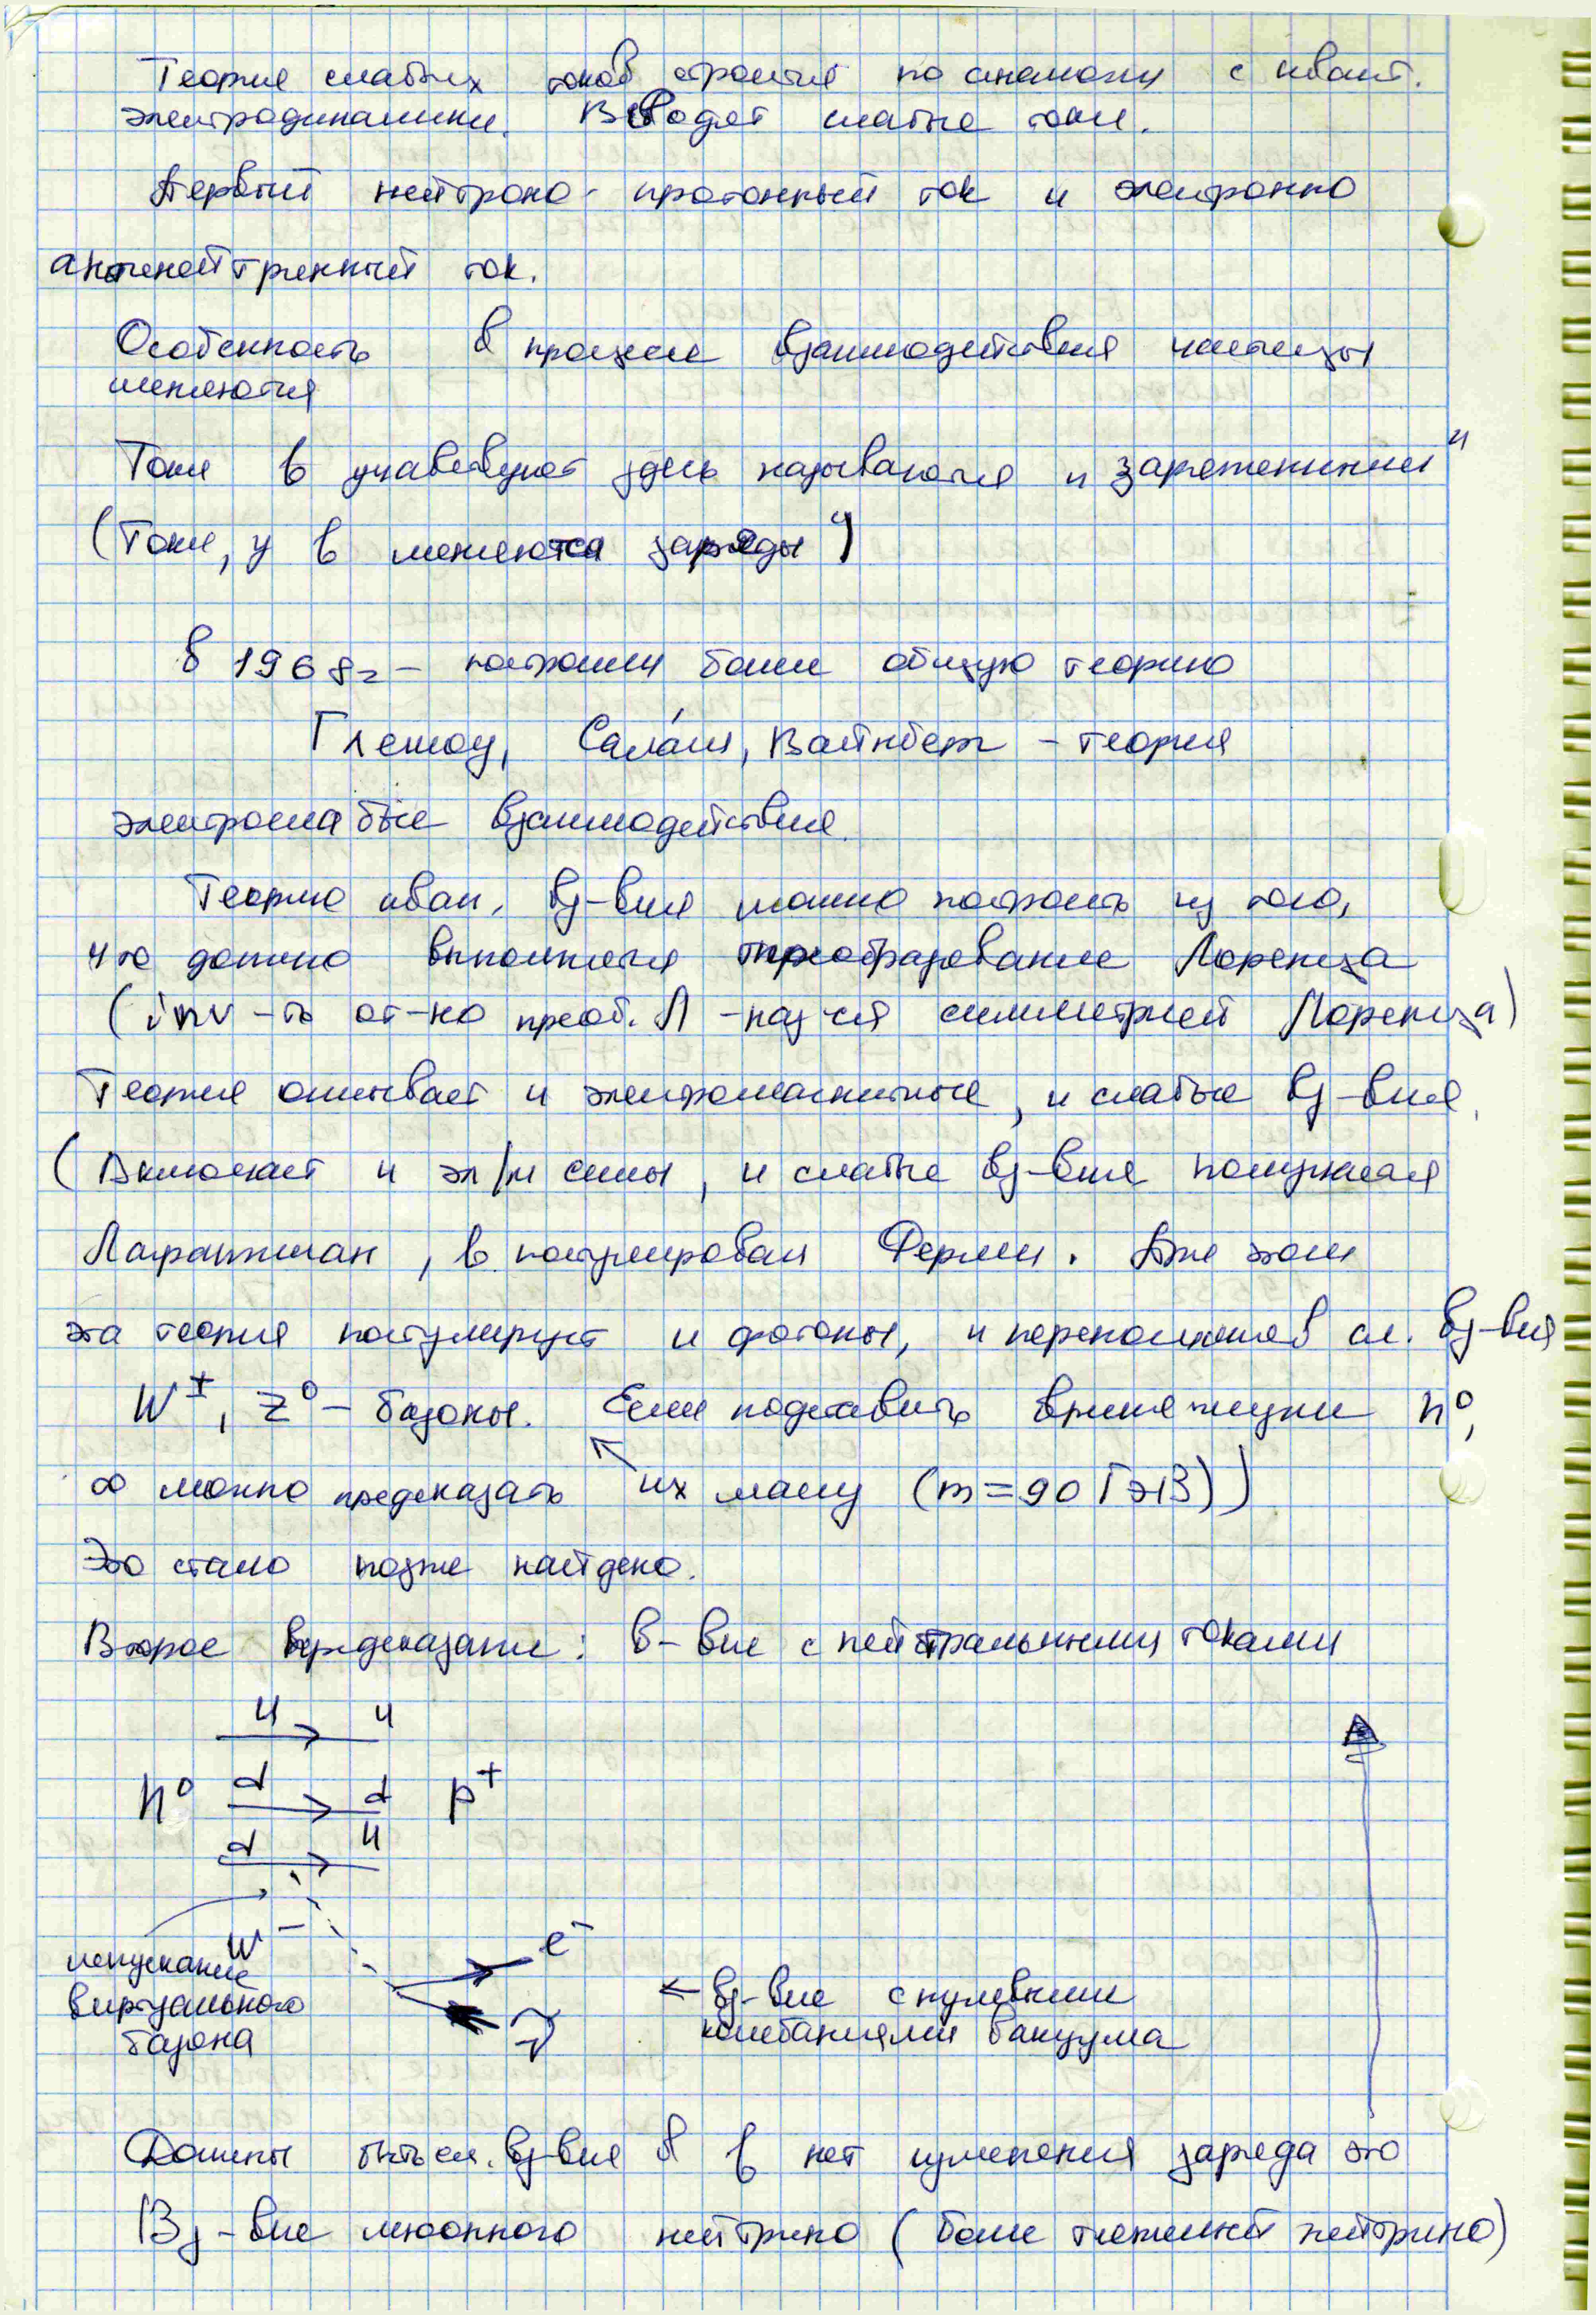 Теория слабых токов строится по аналогии с квант.
электродинамики. Вводят слабые токи.
Первый нейтроно-протонный ток и электронно
антинейтринный ток.
Особенность в процессе взаимодействия частицы
меняются
Токи в участвуют здесь называются "заряженными"
(Токи, у в меняются заряды")
в 1968г – построили более общую теорию
Глешоу, Сала́м, Вайнберг – теория
электрослабые взаимодействия.
Теорию вз-вия можно построить из того,
что должно выполнятся преобразование Лоренца
(inv-ть от-но преоб. Л -наз-ся симметрией Лоренца)
Теория описывает и электромагнитные, и слабые вз-вия.
(Включает и эл/м силы, и слабые вз-вия получился
Лагранжиан, в постулировал Ферми. При этом
эта теория постулирует и фотоны, и переносчиков сл. вз-вия
W±, Z⁰ – бозоны. Если подставить время жизни n⁰,
∞ можно предсказать их массу (m=90 ГэВ))
Это стало позже найдено.
Второе предсказание: в-вие с нейтральными токами
u u
n⁰ d d p⁺
d u
W⁻
e⁻
испускание
виртуального
бозона
ν̃
← вз-вие с нулевыми
колебаниями вакуума
Должны быть сл. вз-вия в нет изменения заряда это
Вз-вие мюонного нейтрино (более тяжелый нейтрино)